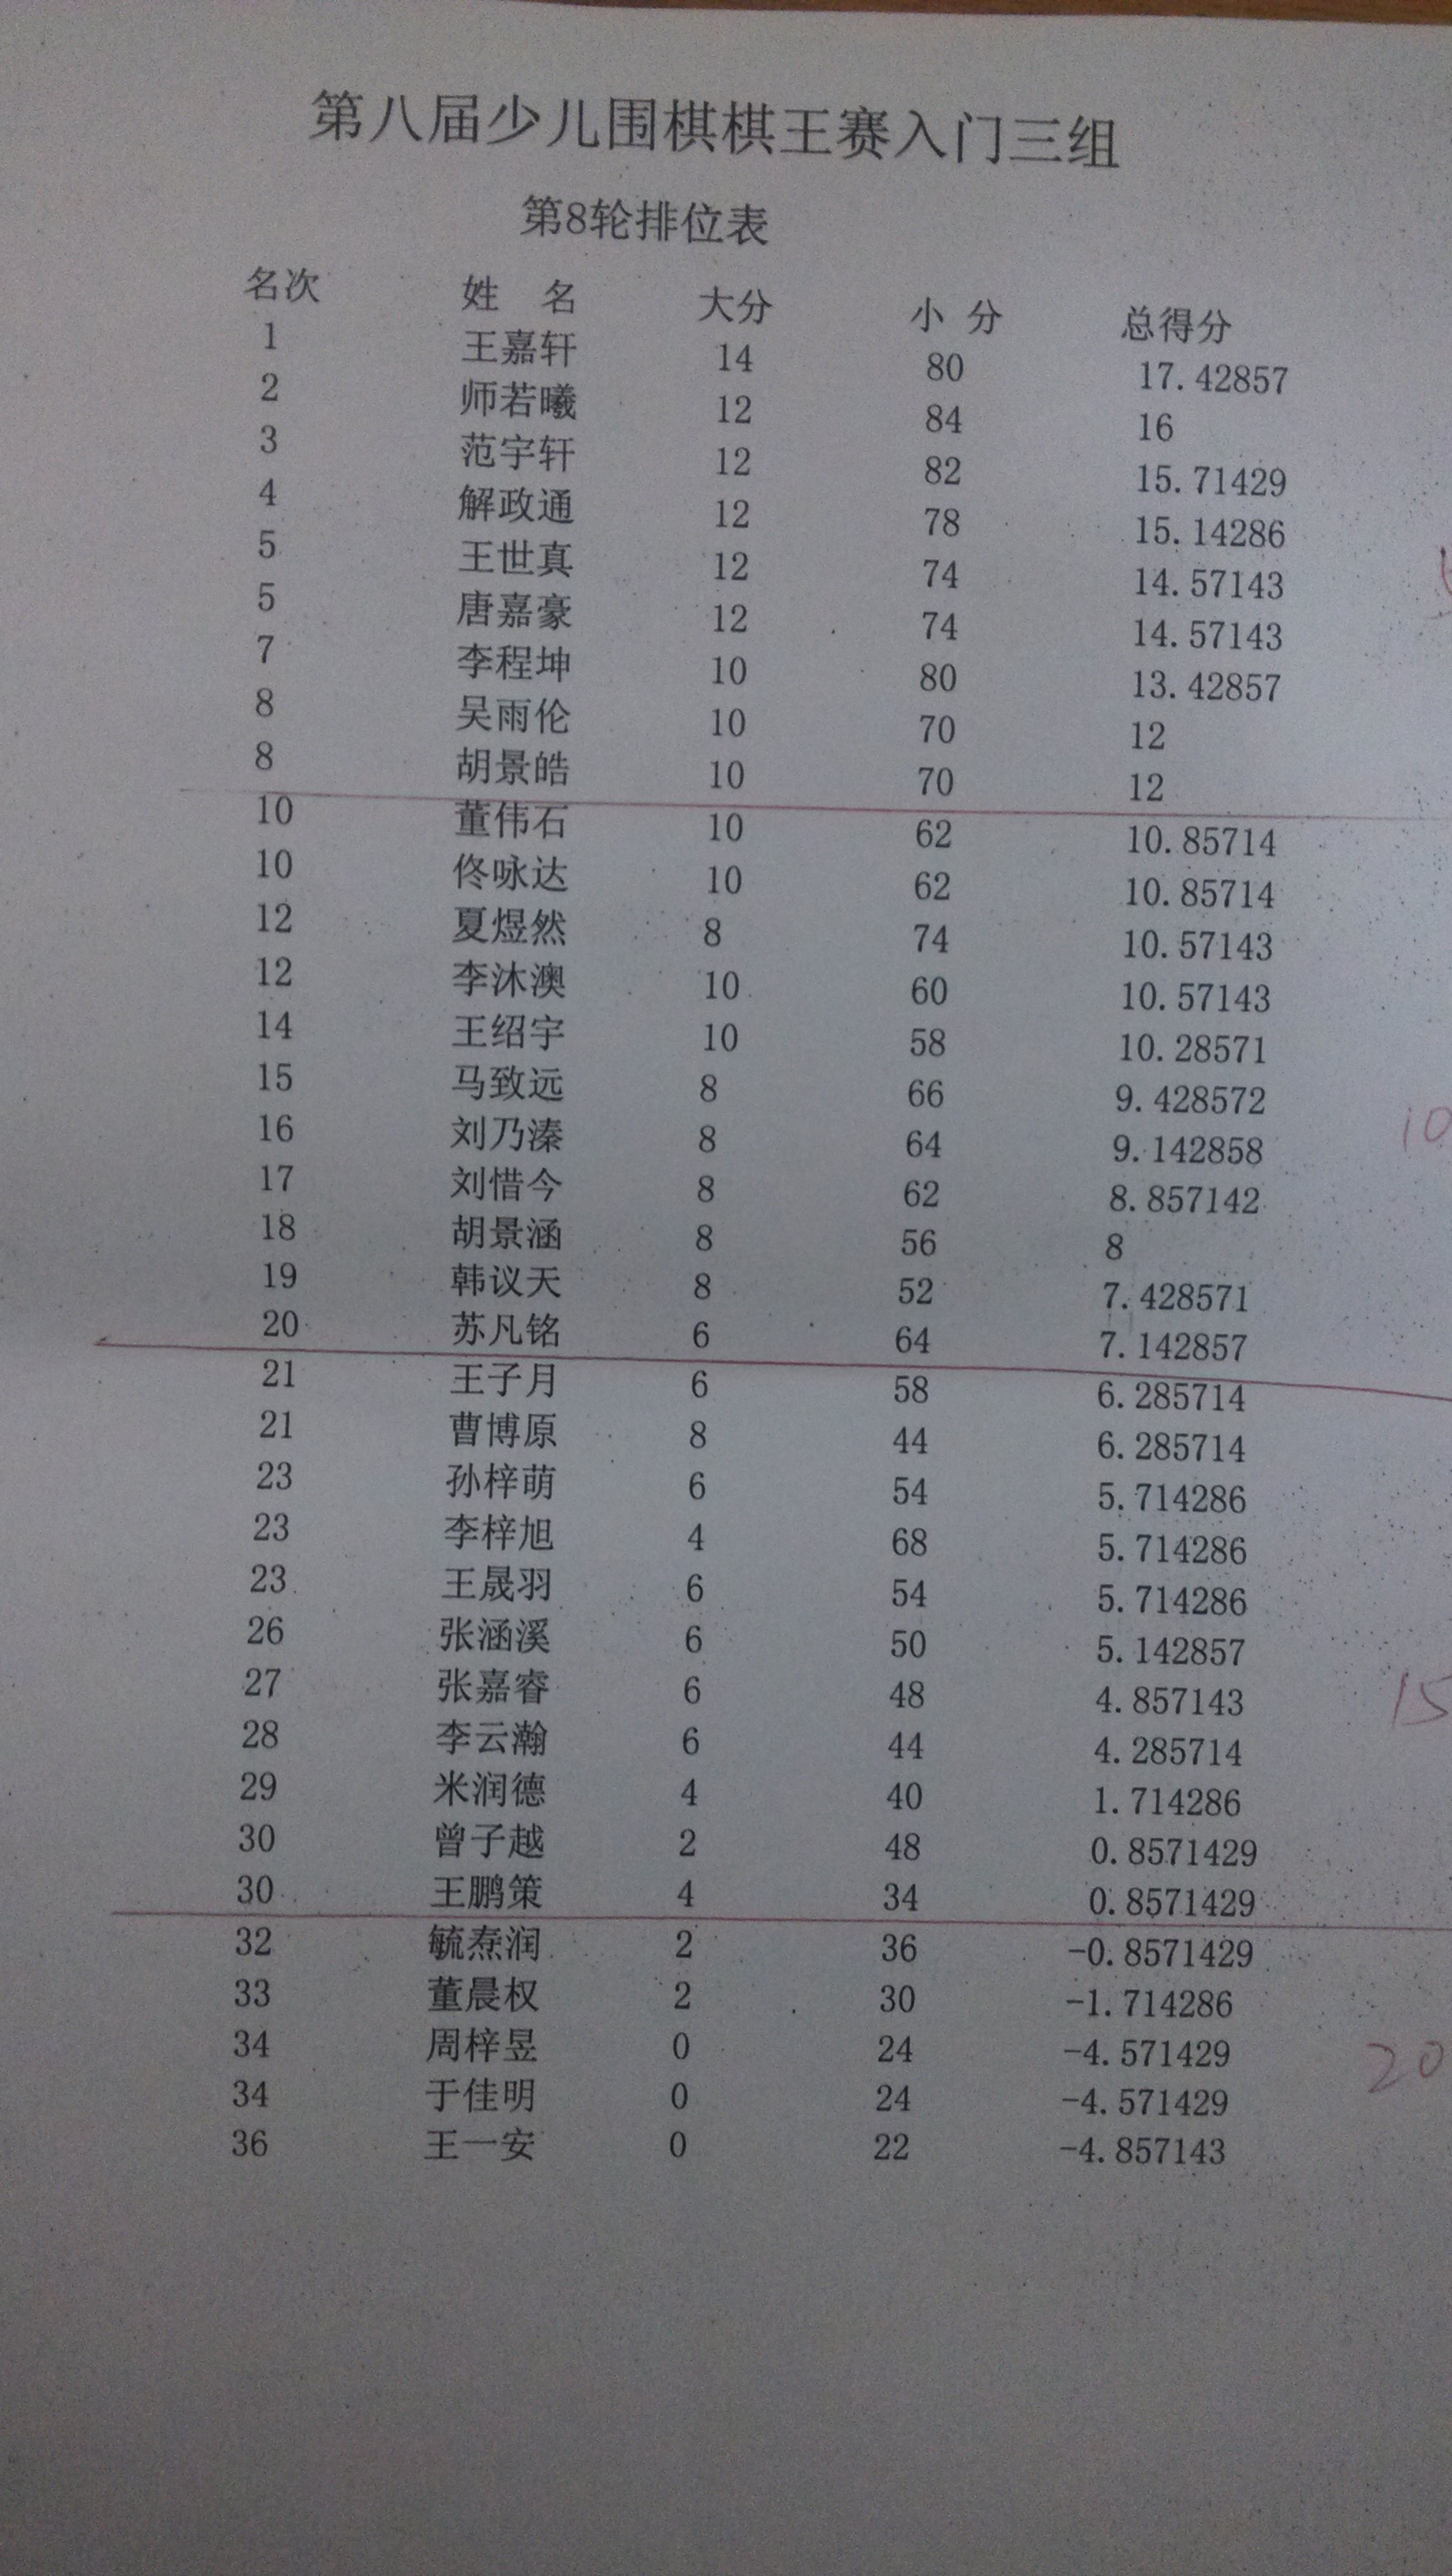 第八届少儿围棋棋王赛入门三组
第8轮排位表
名次 姓 名 大分 小 分 总得分
1 王嘉轩 14 80 17.42857
2 师若曦 12 84 16
3 范宇轩 12 82 15.71429
4 解政通 12 78 15.14286
5 王世真 12 74 14.57143
5 唐嘉豪 12 74 14.57143
7 李程坤 10 80 13.42857
8 吴雨伦 10 70 12
8 胡景皓 10 70 12
10 董伟石 10 62 10.85714
10 佟咏达 10 62 10.85714
12 夏煜然 8 74 10.57143
12 李沐澳 10 60 10.57143
14 王绍宇 10 58 10.28571
15 马致远 8 66 9.428572
10
16 刘乃溱 8 64 9.142858
17 刘惜今 8 62 8.857142
18 胡景涵 8 56 8
19 韩议天 8 52 7.428571
20 苏凡铭 6 64 7.142857
21 王子月 6 58 6.285714
21 曹博原 8 44 6.285714
23 孙梓萌 6 54 5.714286
23 李梓旭 4 68 5.714286
23 王晟羽 6 54 5.714286
26 张涵溪 6 50 5.142857
27 张嘉睿 6 48 4.857143
15
28 李云瀚 6 44 4.285714
29 米润德 4 40 1.714286
30 曾子越 2 48 0.8571429
30 王鹏策 4 34 0.8571429
32 毓焘润 2 36 -0.8571429
33 董晨权 2 30 -1.714286
34 周梓昱 0 24 -4.571429
20
34 于佳明 0 24 -4.571429
36 王一安 0 22 -4.857143